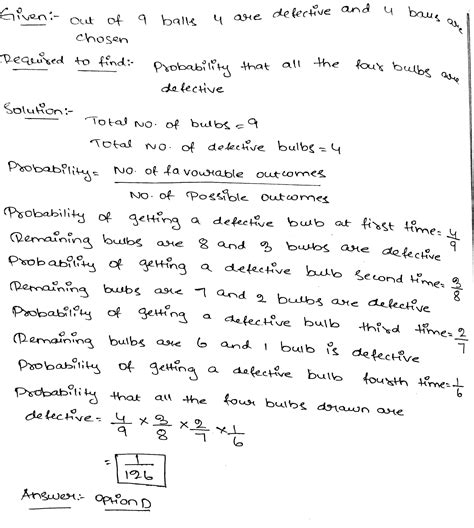 Given:- out of 9 balls 4 are defective and 4 balls are
chosen
Required to find:- Probability that all the four bulbs are
defective
Solution:-
Total no. of bulbs = 9
Total no. of defective bulbs = 4
Probability = No. of favourable outcomes / No. of Possible outcomes
Probability of getting a defective bulb at first time = 4/9
Remaining bulbs are 8 and 3 bulbs are defective
Probability of getting a defective bulb second time = 3/8
Remaining bulbs are 7 and 2 bulbs are defective
Probability of getting a defective bulb third time = 2/7
Remaining bulbs are 6 and 1 bulb is defective
Probability of getting a defective bulb fourth time = 1/6
Probability that all the four bulbs drawn are
defective = 4/9 × 3/8 × 2/7 × 1/6
= 1/126
Answer:- Option D